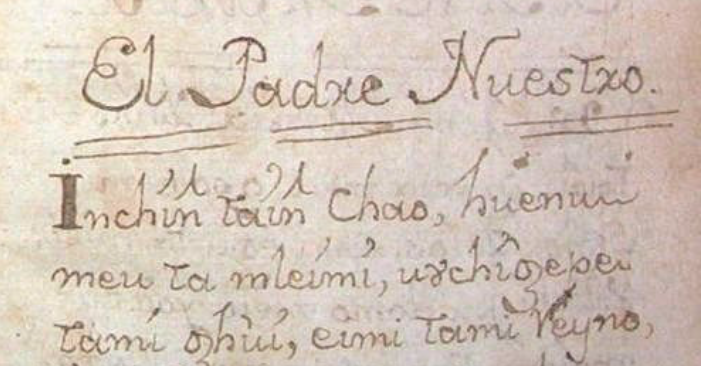 El Padre Nuestro.
Inchin̄ tain̄ Chao, huenu
meu ta mleími, urchîgepe
tamí ghîií, eimi tami Reyno,